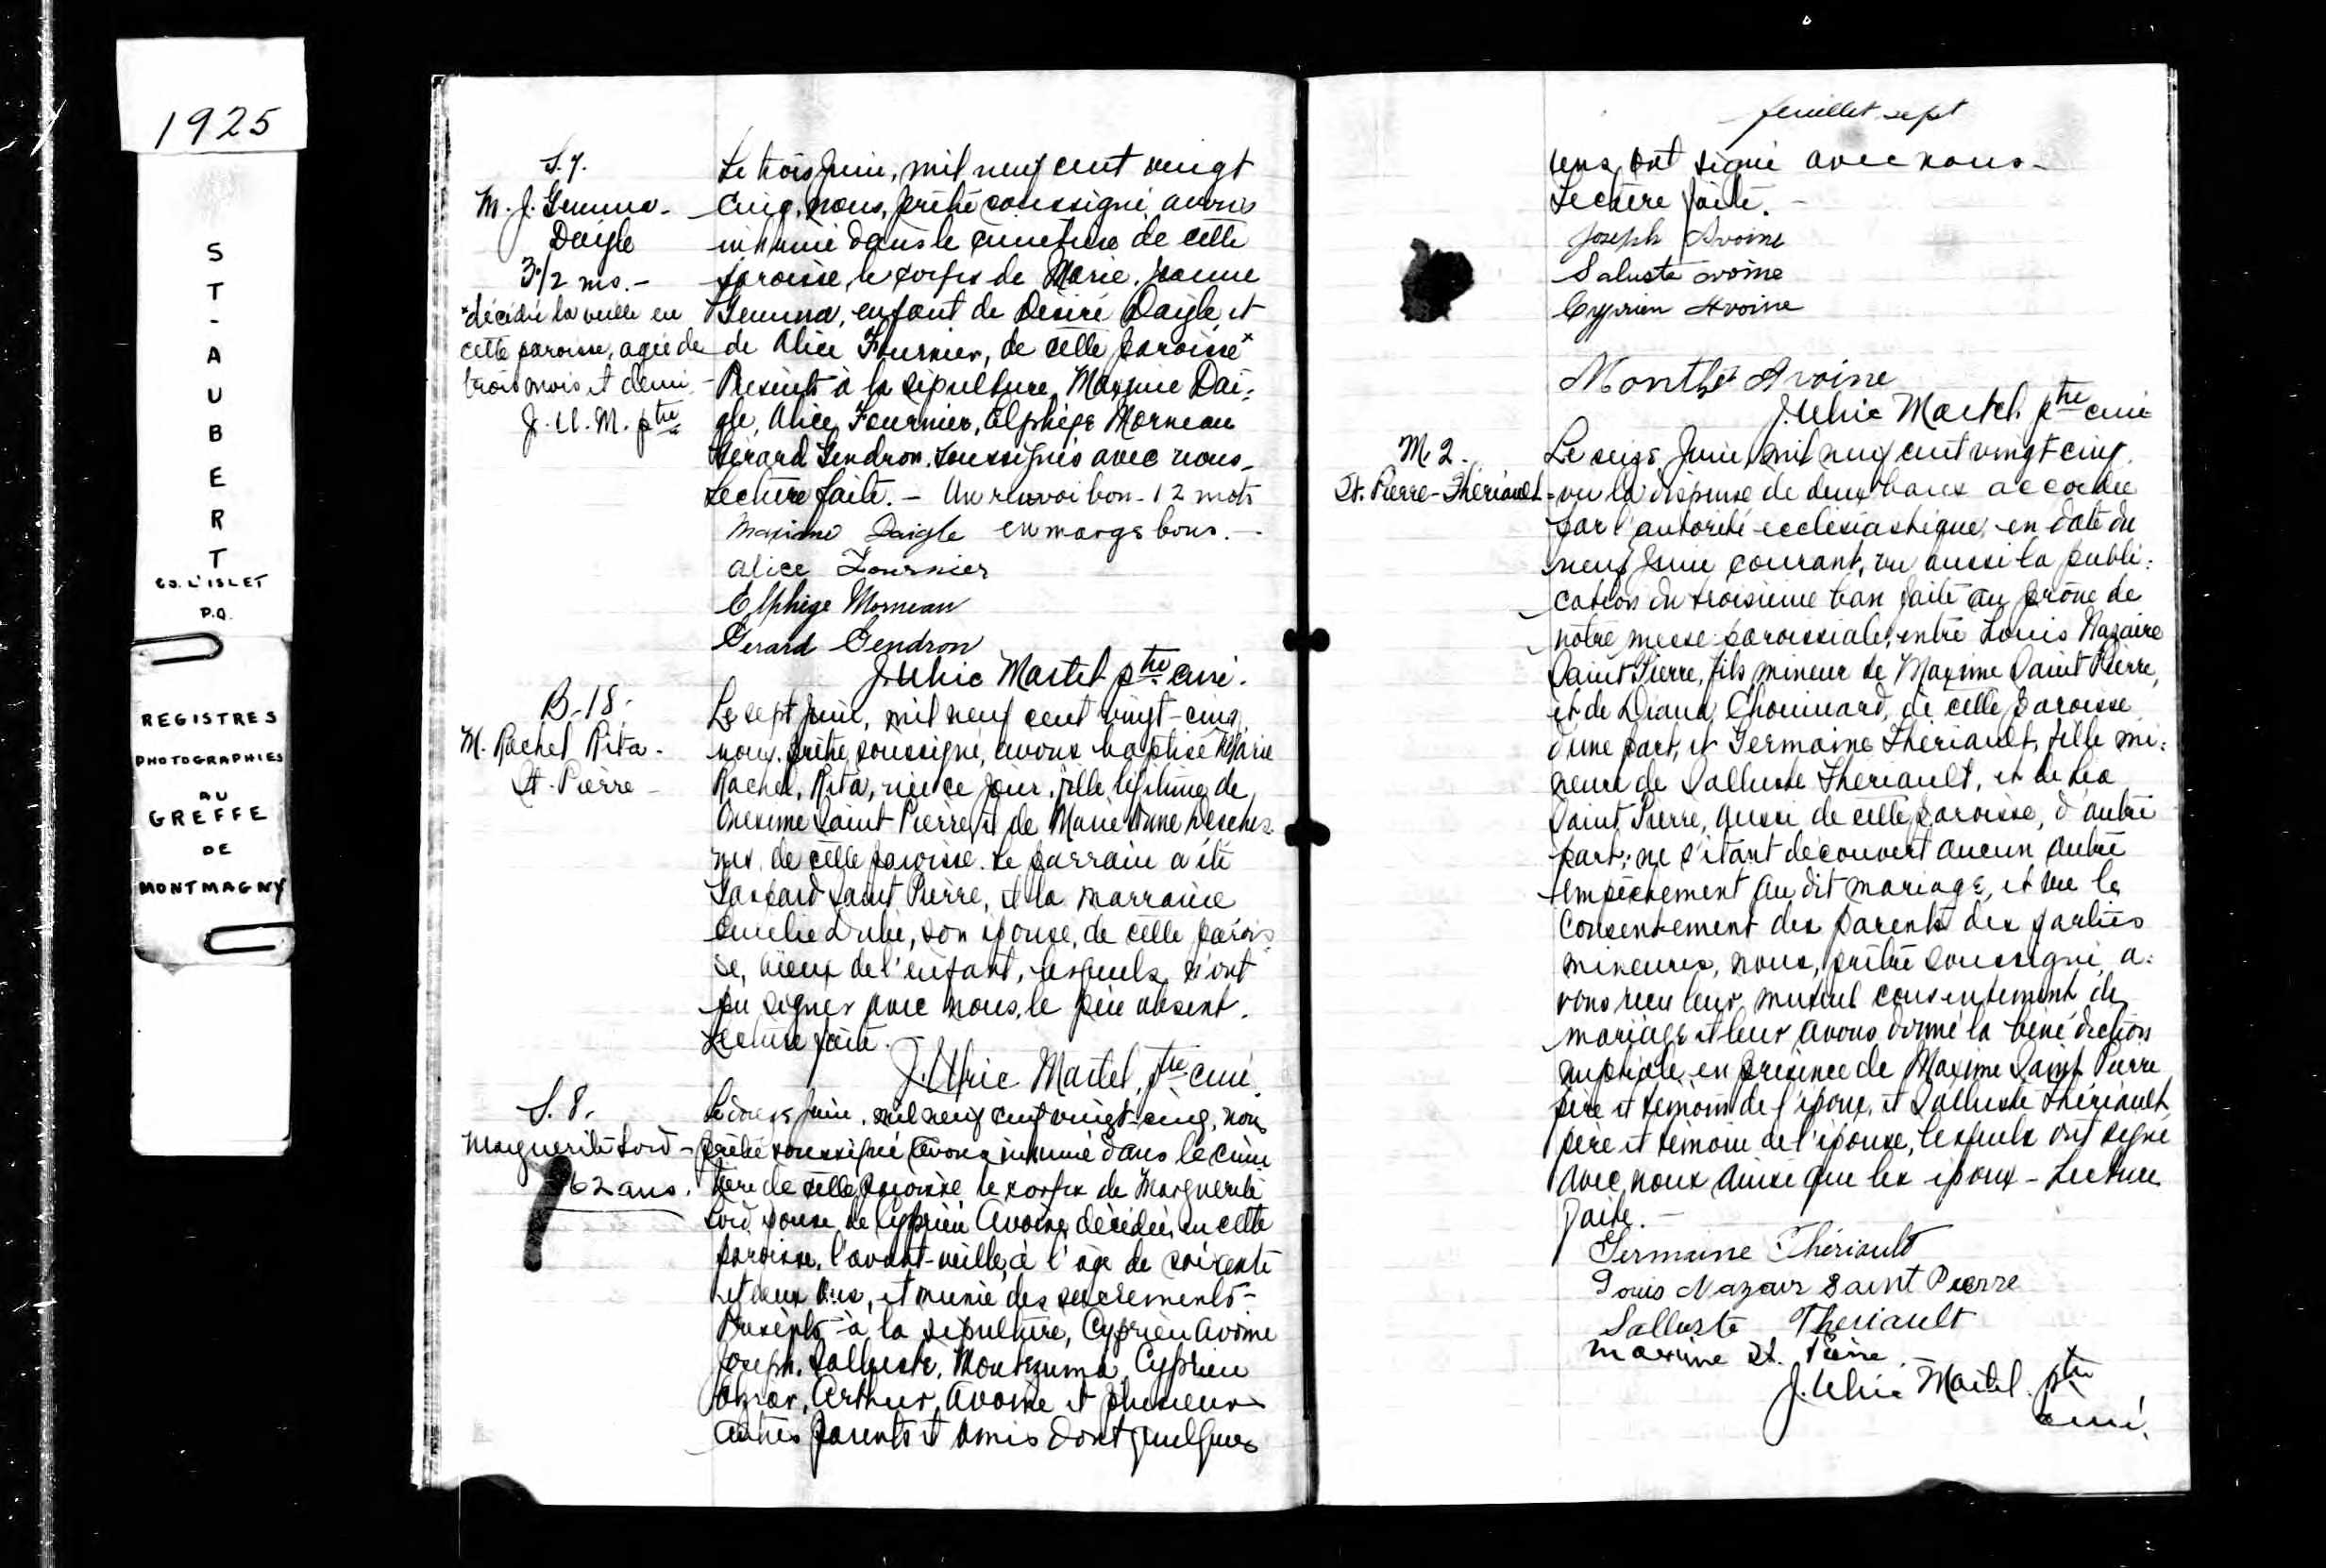 1925
S
T
-
A
U
B
E
R
T
CO. L'ISLET
P.Q.
REGISTRES
PHOTOGRAPHIES
AU
GREFFE
DE
MONTMAGNY
S. 7.
M. J. Gemma
Daigle
3 1/2 ms.-
*décédée la veille en
cette paroisse, agée de
trois mois et demi
J. U. M. ptre
Le trois Juin, mil neuf cent vingt
cinq, nous, prêtre soussigné, avons
inhumé dans le cimetière de cette
paroisse, le corps de Marie, Jeanne
Gemma, enfant de Désiré Daigle, et
de Alice Fournier, de cette paroisse*
Présents à la sépulture, Maxime Dai=
gle, Alice Fournier, Elphège Morneau
Gérard Gendron, soussignés avec nous-
Lecture faite. - Un renvoi bon - 12 mots
Maxime Daigle en marge bons. -
Alice Fournier
Elphège Morneau
Gerard Gendron
J. Ulric Martel ptre curé.
B-18-
M. Rachel Rita-
St-Pierre-
Le sept Juin, mil neuf cent vingt-cinq,
nous, prêtre soussigné, avons baptisé Marie
Rachel, Rita, née ce jour, fille légitime de
Onésime Saint-Pierre, et de Marie Anne Desche
nes, de cette paroisse. Le parrain a été
Gaspard Saint Pierre, et la marraine
Emelie Dubé, son épouse, de cette parois
se, aïeux de l'enfant, lesquels n'ont
pu signer avec nous, le père absent.
Lecture faite.
J. Ulric Martel, ptre curé
S. 8.
Marguerite Lord-
62 ans.
Le Juin, mil neuf cent vingt-cinq, nous
prêtre soussigné avons inhumé dans le cime
tière de cette paroisse le corps de Marguerite
Lord, épouse de Cyprien Avoine, décédée, en cette
paroisse, l'avant-veille, à l'âge de soixante
et deux ans, et munie des sacrements-
Présents à la sépulture, Cyprien Avoine
Joseph, Salluste, Montezuma, Cyprien
Arthur, Avoine et plusieurs
autres parents et amis dont quelques
feuillet sept
uns ont signé avec nous-
Lecture faite.-
Joseph Avoine
Saluste avoine
Cyprien Avoine
Avoine
J. Ulric Martel ptre curé
M. 2.
St. Pierre-Thériault
Le seize Juin, mil neuf cent vingt cinq,
vu la dispense de deux bans accordée
par l'autorité ecclésiastique, en date du
neuf Juin courant, vu aussi la publi=
cation du troisième ban faite au prône de
notre messe paroissiale, entre Louis Nazaire
Saint Pierre, fils mineur de Maxime Saint Pierre,
et de Diana Chouinard, de cette paroisse
d'une part, et Germaine Thériault, fille mi=
neure de Salluste Thériault, et de Léa
Saint Pierre, aussi de cette paroisse, d'autre
part; ne s'étant découvert aucun autre
empêchement au dit mariage, et vu le
consentement des parents des parties
mineures, nous, prêtre soussigné, a=
vons reçu leur mutuel consentement de
mariage et leur avons donné la bénédiction
nuptiale, en présence de Maxime Saint Pierre
père et témoin de l'époux, et Salluste Thériault,
père et témoin de l'épouse, lesquels ont signé
avec nous ainsi que les époux - Lecture
faite.-
Germaine Thériault
Louis Nazair Saint Pierre
Salluste Theriault
Maxime St. Pierre
J. Ulric Martel ptre
curé.